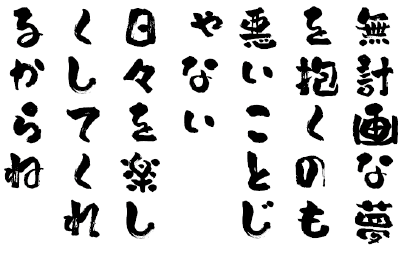 無計画な夢
を抱くのも
悪いことじ
ゃない
日々を楽し
くしてくれ
るからね